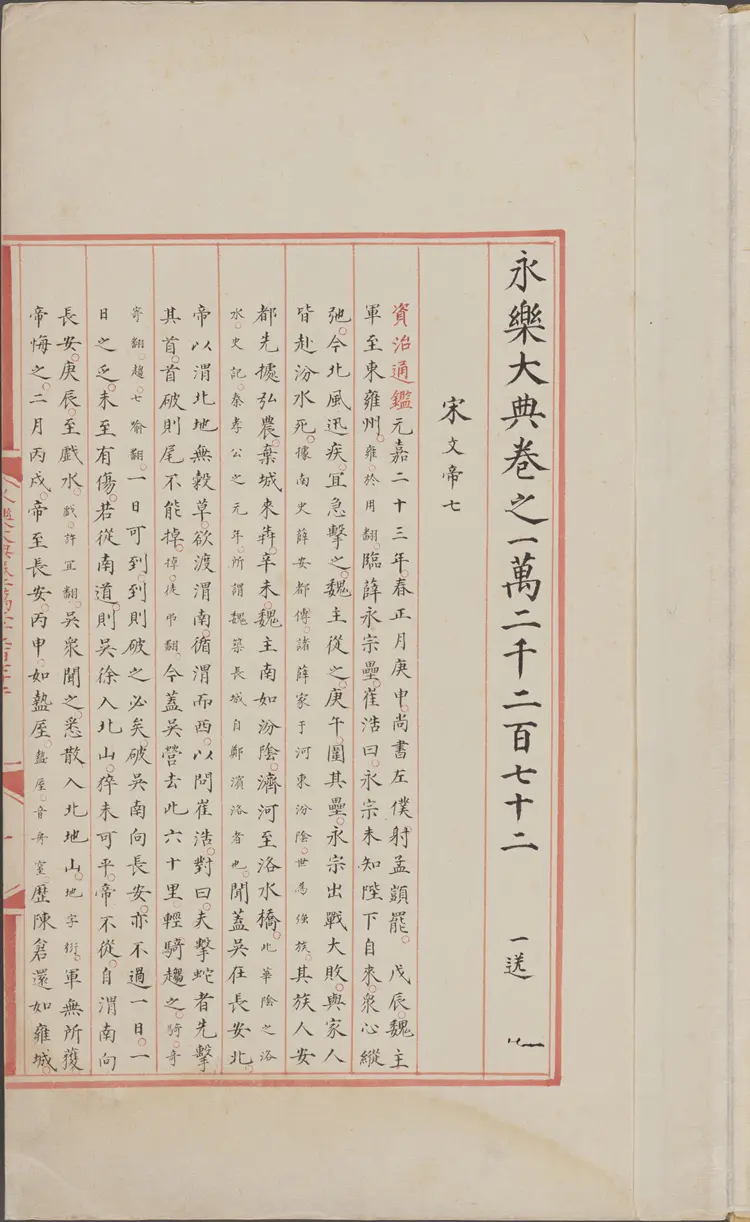 永樂大典卷之一萬二千二百七十二 一送
宋文帝七
資治通鑑元嘉二十三年。春正月庚申。尚書左僕射孟顗罷。戊辰。魏主
軍至東雍州。雍。於用翻。臨薛永宗壘。崔浩曰。永宗未知陛下自來。衆心縱
弛。今北風迅疾。宜急擊之。魏主從之。庚午。圍其壘。永宗出戰大敗。與家人
皆赴汾水死。據南史薛安都傳。諸薛家于河東汾陰。世爲強族。其族人安
都先據弘農。棄城來犇。辛未。魏主南如汾陰。濟河至洛水橋。此華陰之洛
水。史記。秦孝公之元年。所謂魏築長城自鄭濱洛者也。聞蓋吳在長安北。
帝以渭北地無穀草。欲渡渭南。循渭而西。以問崔浩。對曰。夫擊蛇者先擊
其首。首破則尾不能掉。掉。徒弔翻。今蓋吳營去此六十里。輕騎趨之。騎。奇
寄翻。趨。七喻翻。一日可到。到則破之必矣。破吳南向長安。亦不過一日。一
日之乏。未至有傷。若從南道。則吳徐入北山。猝未可平。帝不從。自渭南向
長安。庚辰。至戲水。戲。許宜翻。吳衆聞之。悉散入北地山。地字衍。軍無所獲
帝悔之。二月丙戌。帝至長安。丙申。如盩厔。盩厔。音舟窒。歷陳倉還如雍城。